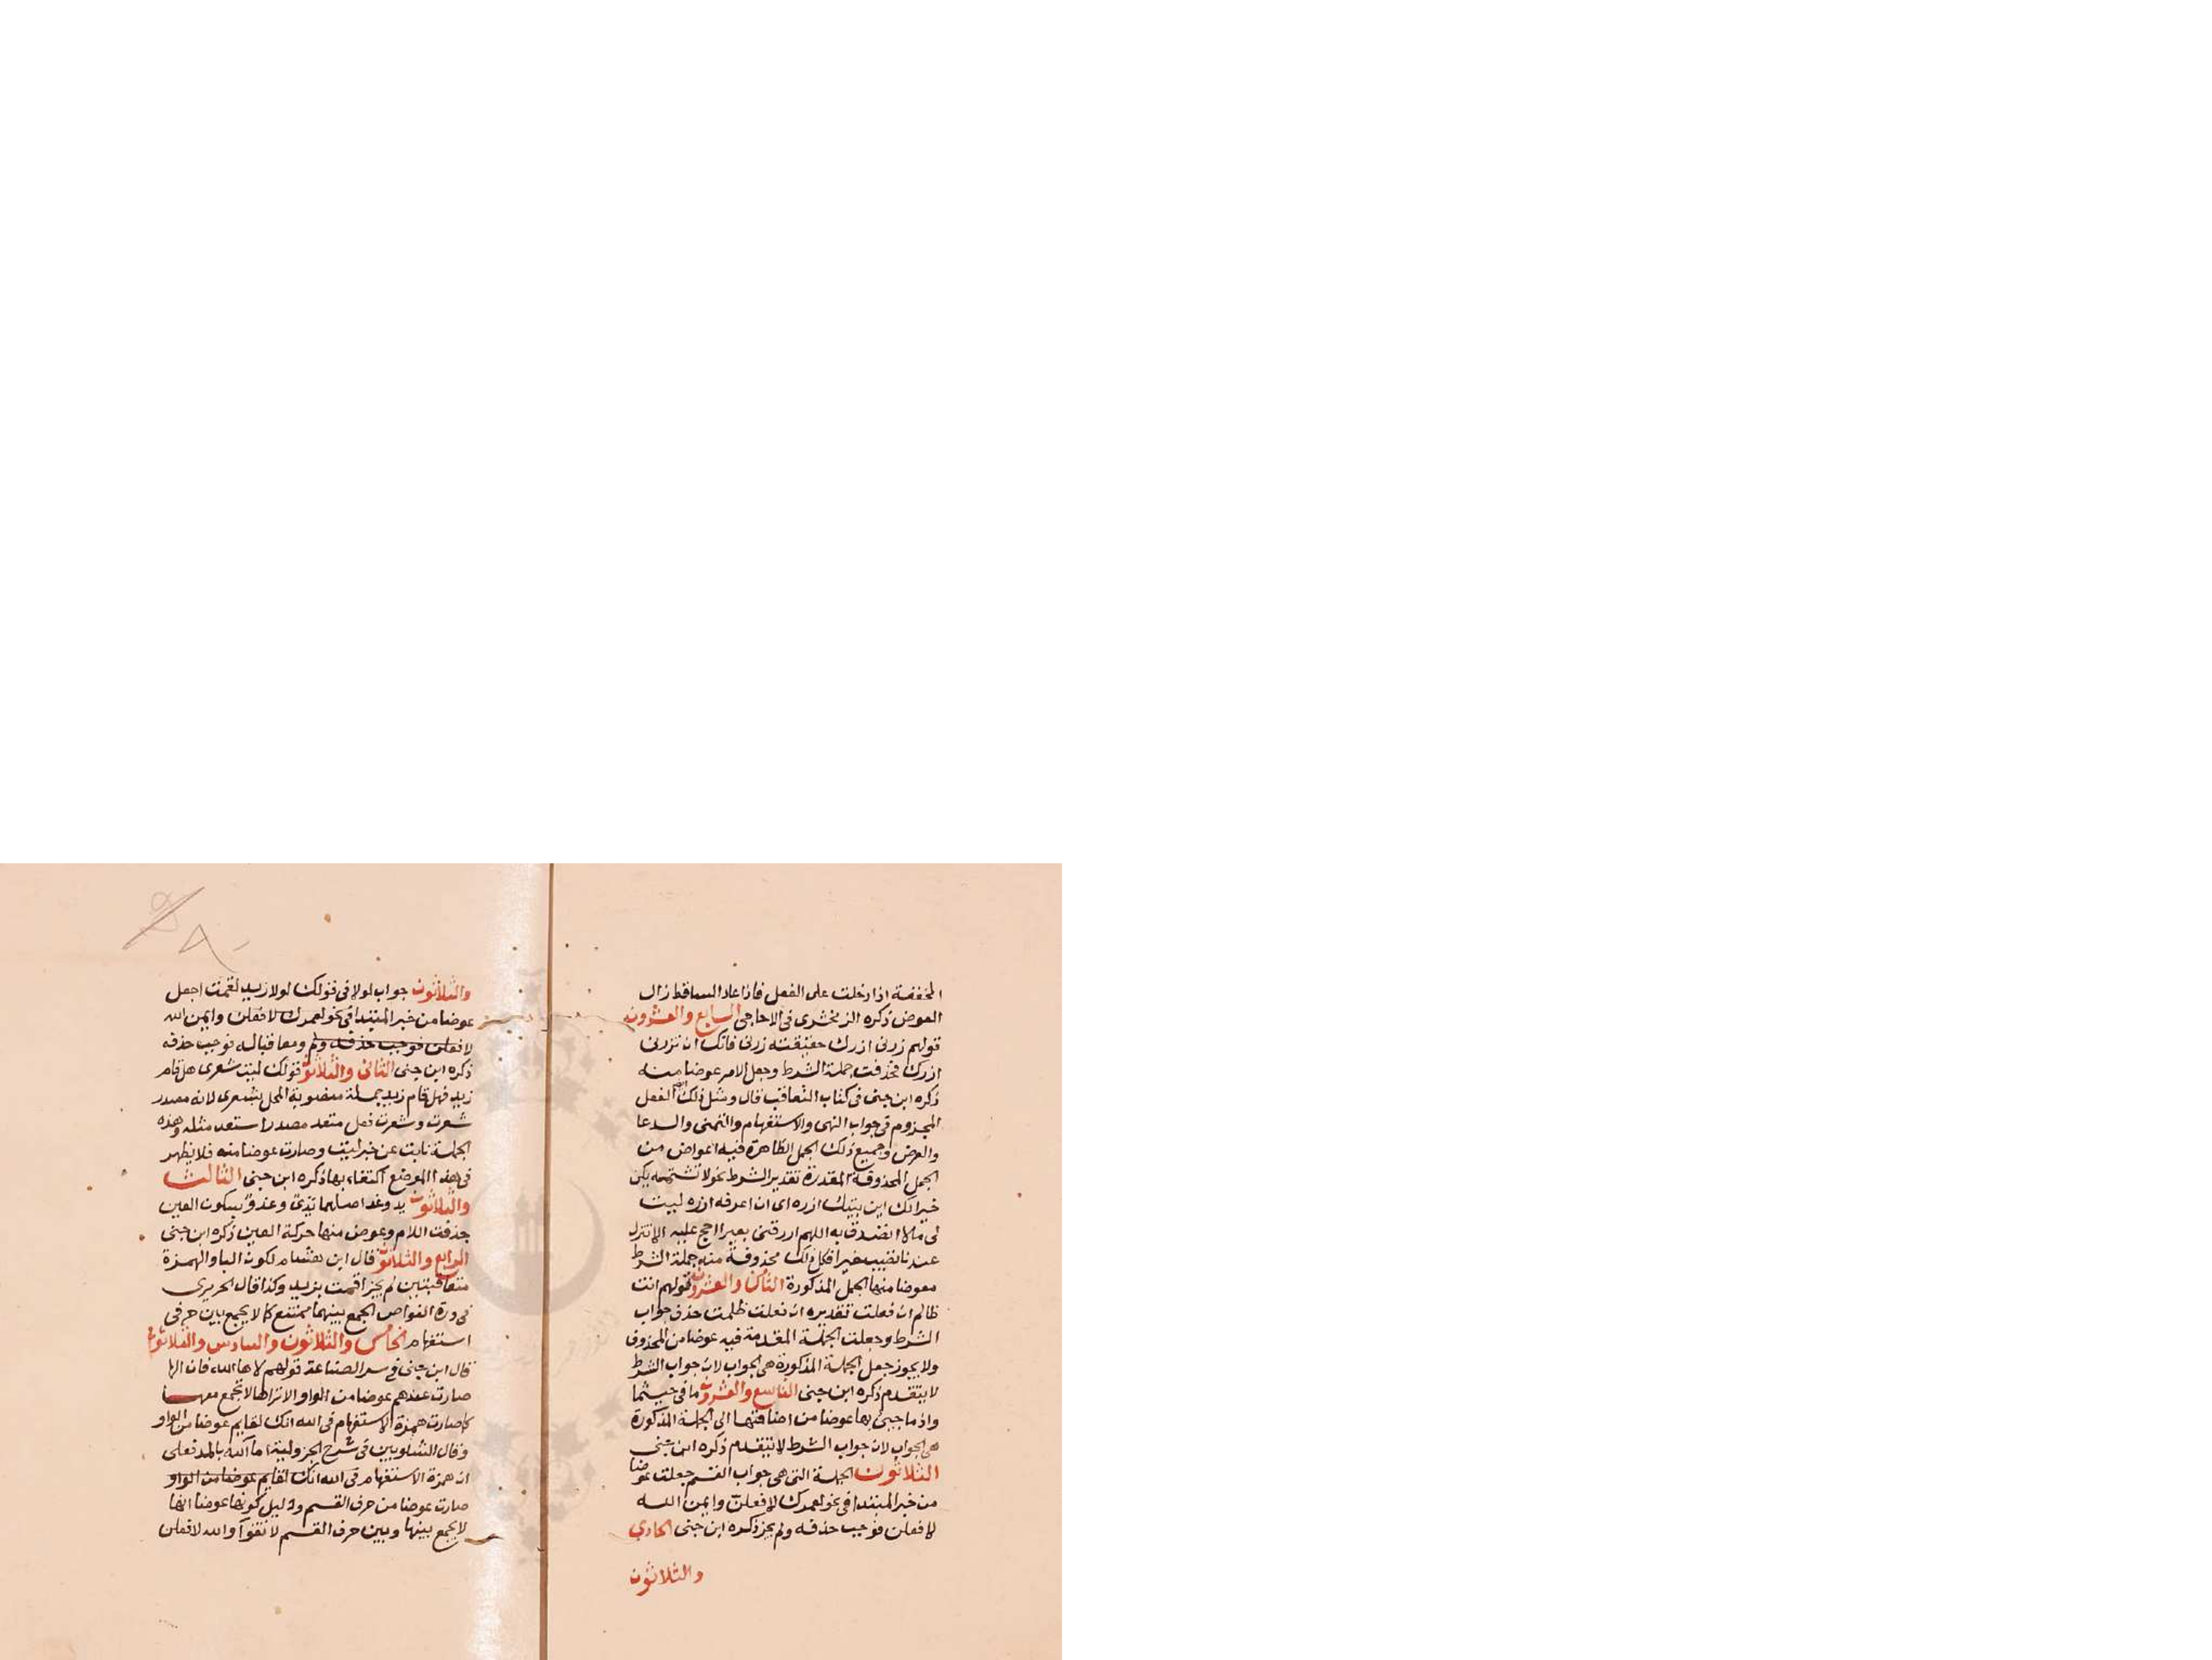 المخففة اذا دخلت على الفعل فاذا عاد الساقط زال
العوض ذكره الزمخشرى فى الاحاجى السابع والعشرون
قولهم زرنى ازرك حقيقته زرنى فانك ان تزرنى
ازرك فحذفت جملة الشرط وجعل الامر عوضا منه
ذكره ابن جنى فى كتاب التعاقب قال ومثل ذلك الفعل
المجزوم فى جواب النهى والاستفهام والتمنى والدعا
والعرض وجميع ذلك الجمل الظاهرة فيه اعواض من
الجمل المحذوفة المقدرة تقدير الشرط نحو لا تشتمه يكن
خيرا لك اين بيتك ازره اى ان اعرفه ازره ليت
لى مالا اتصدق به اللهم ارزقنى بعيرا احج عليه الا تنزل
عندنا تصيب خيرا فكل ذلك محذوفة منه جملة الشرط
معوضا منها الجمل المذكورة الثامن والعشرون قولهم انت
ظالم ان فعلت تقديره ان فعلت ظلمت حذف جواب
الشرط وجعلت الجملة المقدمة فيه عوضا من المحذوف
ولا يجوز جعل الجملة المذكورة هى الجواب لان جواب الشرط
لا يتقدم ذكره ابن جنى التاسع والعشرون ما فى حيثما
واذ ما جيئ بها عوضا من اضافتها الى الجملة المذكورة
هى الجواب لان جواب الشرط لا يتقدم ذكره ابن جنى
الثلاثون الجملة التى هى جواب القسم جعلت عوضا
من خبر المبتدا فى نحو لعمرك لافعلن وايمن الله
لافعلن فوجب حذفه ولم يجز ذكره ابن جنى الحادي
والثلاثون
والثلاثون جواب لولا فى قولك لولا زيد لقمت اجعل
عوضا من خبر المبتدا فى نحو لعمرك لافعلن وايمن الله
لافعلن فوجب حذفه ولم ومعاقبا له فوجب حذفه
ذكره ابن جنى الثانى والثلاثون قولك ليت شعرى هل قام
زيد فهل قام زيد جملة منصوبة المحل بشعرى لانه مصدر
شعرت وشعرت فعل متعد مصدرا ستعد مثله وهذه
الجملة نابت عن خبر ليت وصارت عوضا منه فلا يظهر
فى هذا الموضع اكتفاء بها ذكره ابن جنى الثالث
والثلاثون يد وغد اصلهما يدي وغدو بسكون العين
حذفت اللام وعوض منها حركة العين ذكره ابن جنى
الرابع والثلاثون قال ابن هشام لكون البا والهمزة
متعاقبتين لم يجز اقمت بزيد وكذا قال الحريرى
فى درة الغواص الجمع بينهما ممتنع كما لا يجمع بين حرفى
استفهام الخامس والثلاثون والسادس والثلاثون
قال ابن جنى فى سر الصناعة قولهم لاها الله فان الها
صارت عندهم عوضا من الواو الا تراها لا تجمع معهـا
كما صارت همزة الاستفهام فى الله انك لقايم عوضا من الواو
وقال الشلوبين فى شرح الجزولية اما آلله بالمد فعلى
ان همزة الاستفهام فى الله انك لقايم عوضا من الواو
صارت عوضا من حرف القسم ودليل كونها عوضا انها
لا يجمع بينها وبين حرف القسم لا تقول آوالله لافعلن